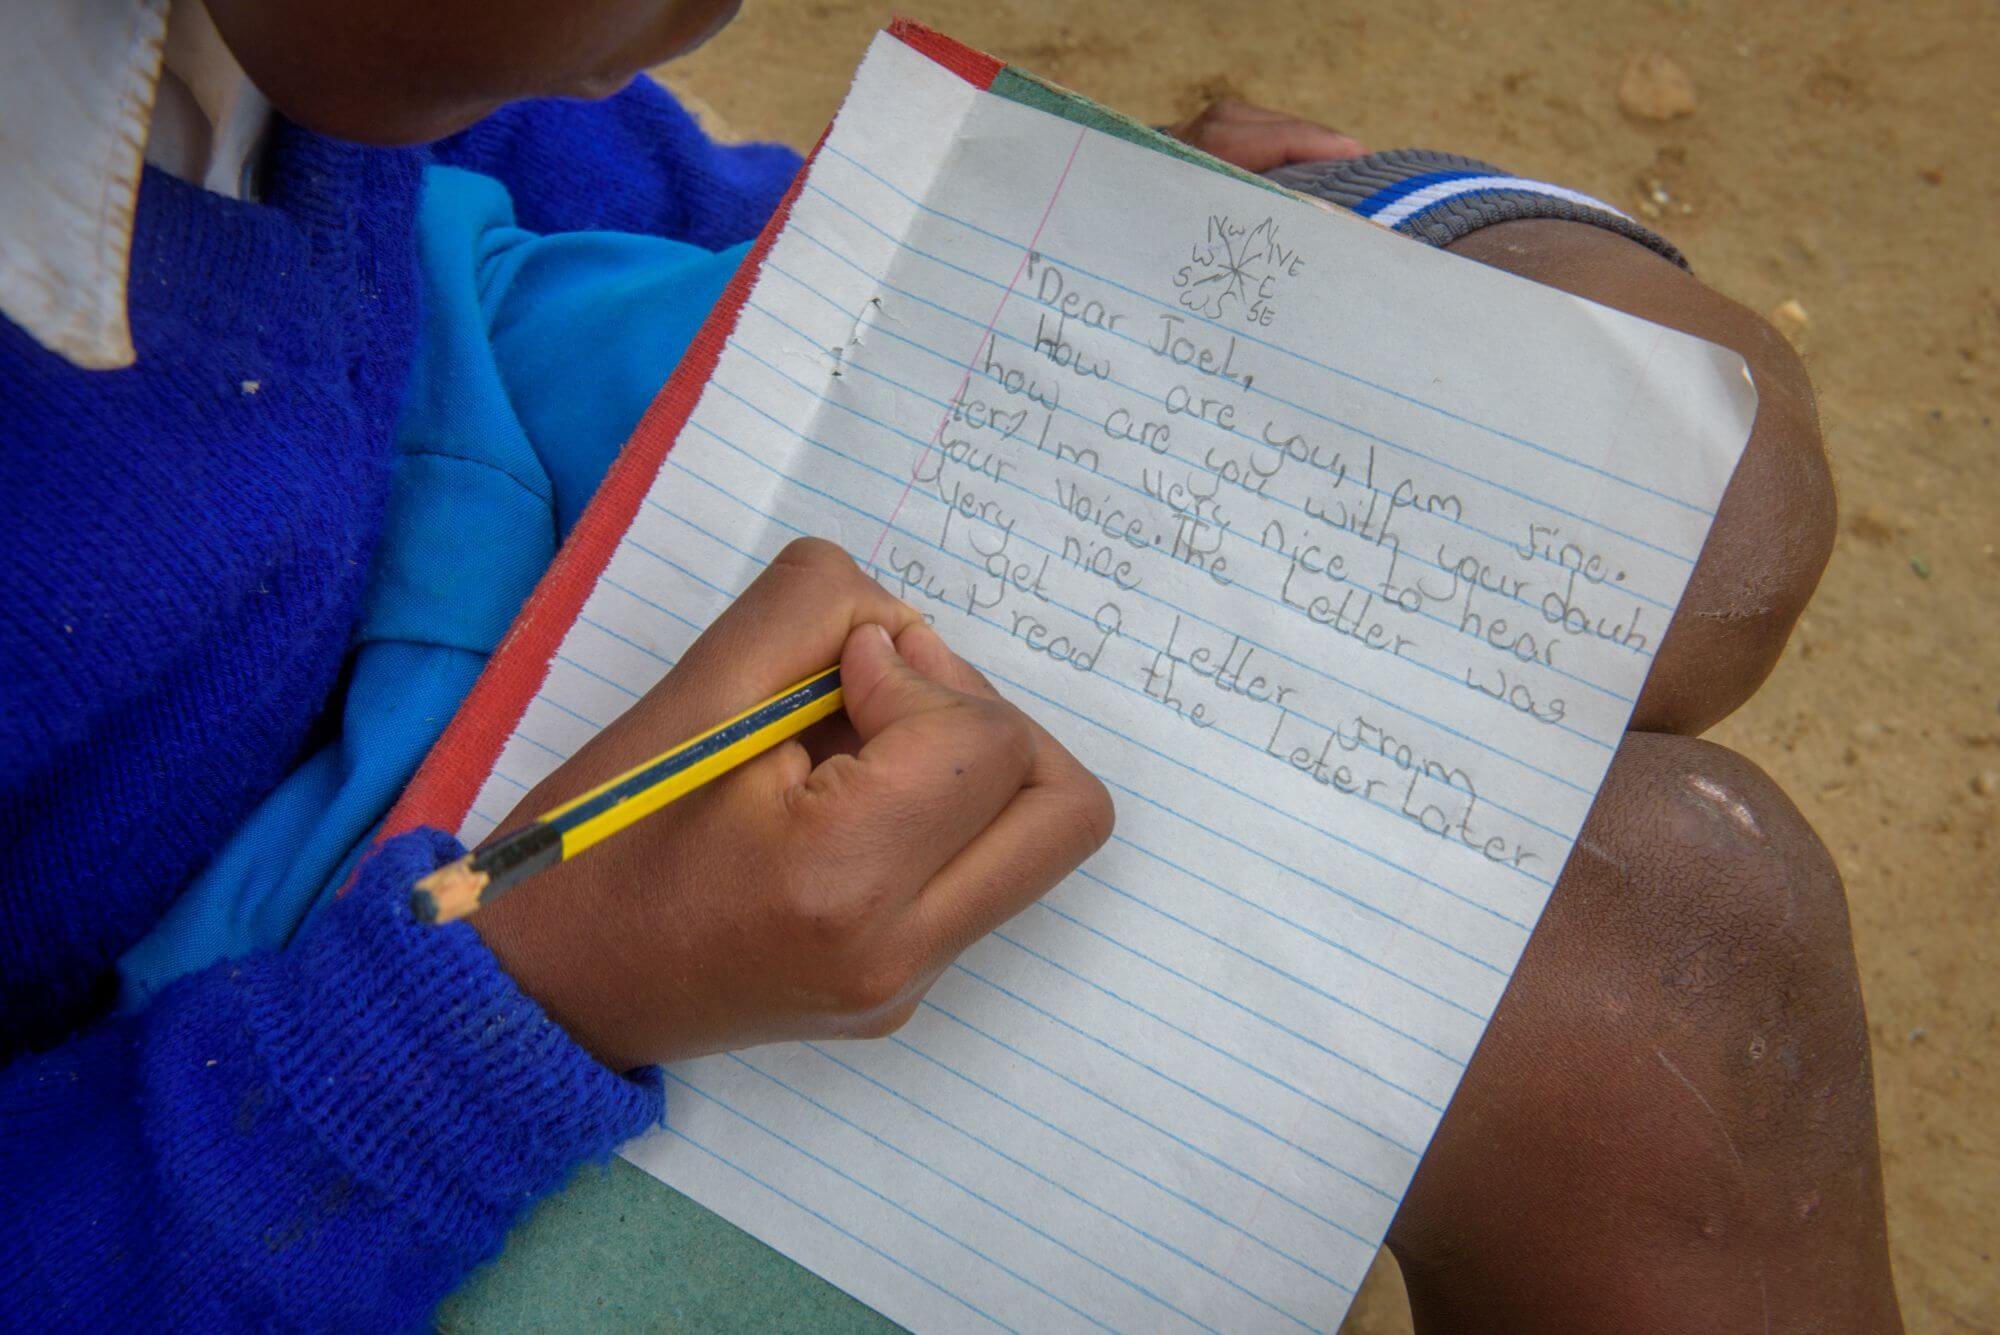 NW N NE
W E
SW S SE
"Dear Joel,
How are you, I am fine.
how are you with your dauh
ter? Im very nice to hear
your voice. The Letter was
very nice
I get a Letter from
you I read the Leter Later